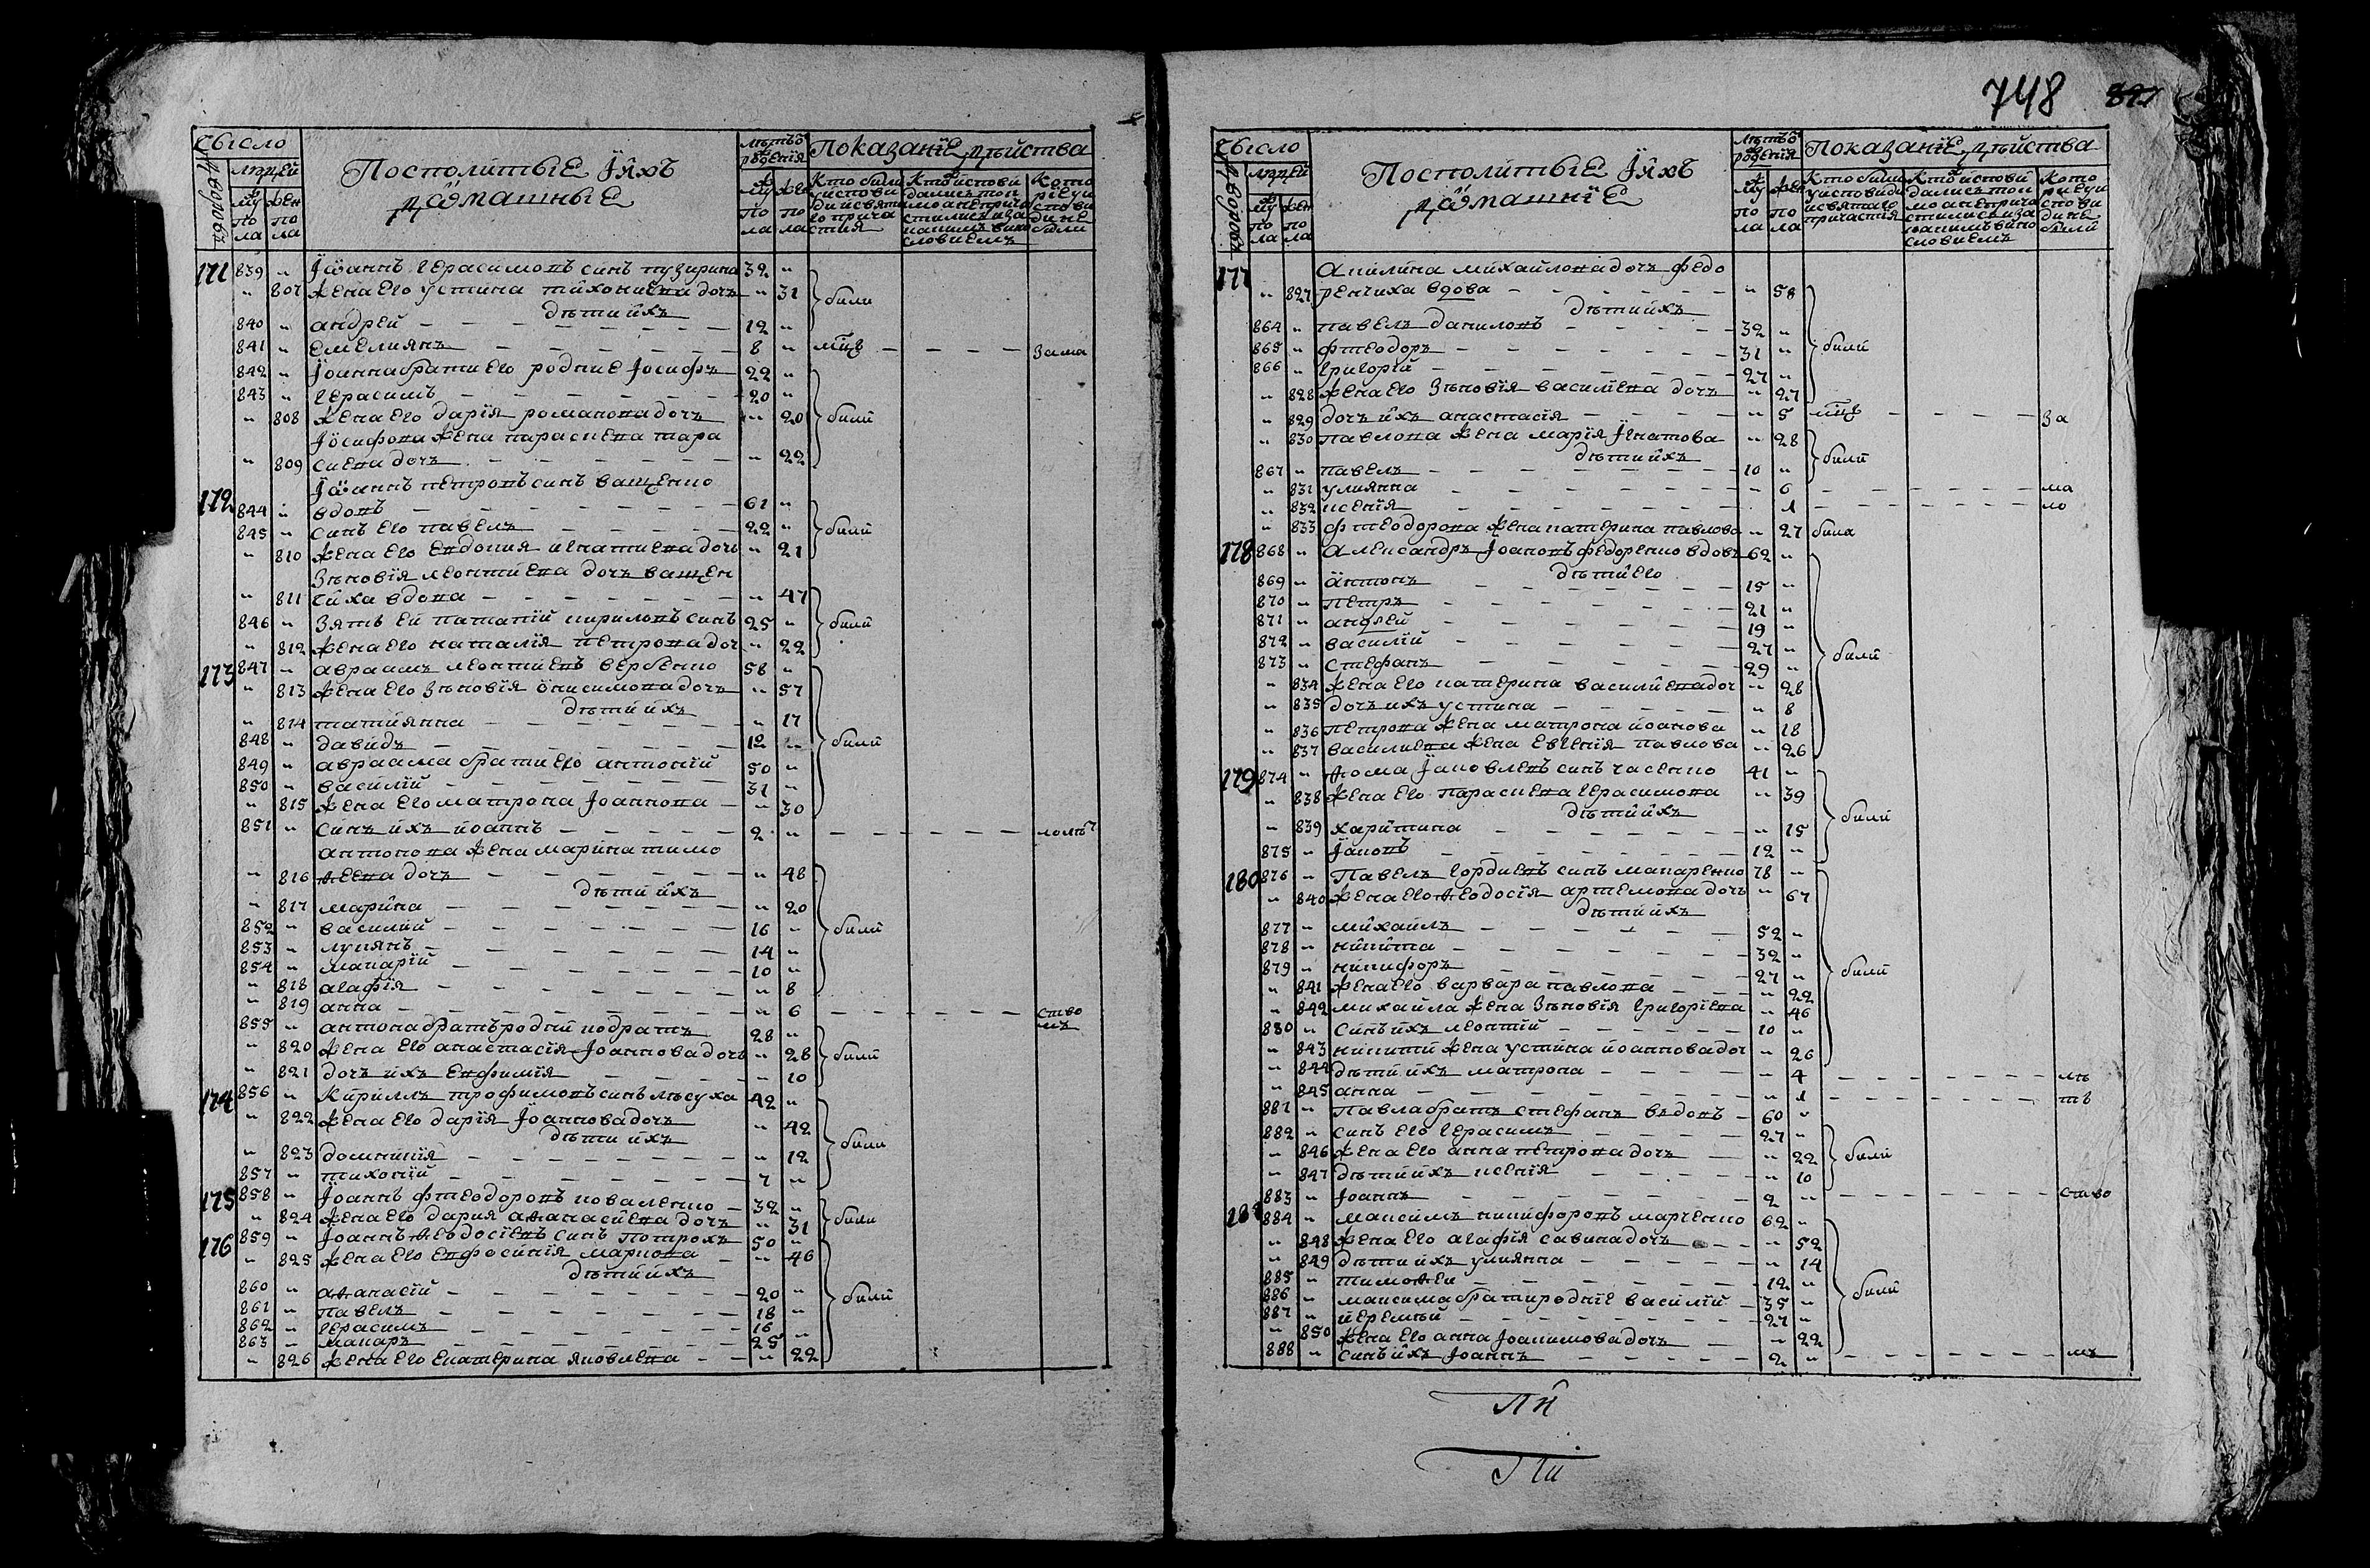 748 827
Число
Дворовъ
Людей
Му
по
ла
жен
по
ла
Посполитые Ӥихъ
домашные
лѣтъ ѿ
роденїя
му
по
ла
жен
по
ла
Показанїе дѣйства
Кто били
уисповѣ
ди исвята
го прича
стия
Кто исповѣ
дались тои
мо анеприча
стились иза
каимъ вино
словиемъ
Кото
рїе уи
спови
ди не
били
171 839 „ Їоаннъ герасимовъ синъ пузирина 32 „
„ 807 жена его устина тихониева дочъ „ 31 били
дѣти ихъ
840 „ андрей 12 „
841 „ емелиянъ 8 „ за ма
842 „ Їоанна брати его родние Їосифъ 22 „
843 „ герасимъ 20 „
„ 808 жена его дарїя романова дочъ „ 20 били
Їосифова жена параскева тара
„ 809 сиева дочъ „ 22
172 Їоаннъ петровъ синъ ващенко
844 „ вдовъ 61 „
845 „ синъ его павелъ 22 „ били
„ 810 жена его евдокия игнатиева дочъ „ 21
Зѣновїя леонтиева дочъ ващен
„ 811 чиха вдова „ 47
846 „ Зять ей потапїй кириловъ синъ 25 „ били
„ 812 жена его наталїя петрова доч „ 22
173 847 „ авраамъ леонтиевъ вербенко 58 „
„ 813 жена его Зѣновїя онисимова дочъ „ 57
дѣти ихъ
„ 814 татиянна „ 17
848 „ давидъ 12 „ били
849 „ авраама брати его антонїй 50 „
850 „ василїй 31 „
„ 815 жена его матрона Їоаннова „ 30
851 „ синъ ихъ иоаннъ 2 „
антонова жена марина тимо
„ 816 ѳеева дочъ „ 48
дѣти ихъ
„ 817 марина „ 20
852 „ василий 16 „ били
853 „ лукянъ 14 „
854 „ макарїй 10 „
„ 818 агафїя „ 8
„ 819 анна „ 6 ство
855 „ антона братъ родний кодратъ 28 „ мъ
„ 820 жена его анастасїя Їоаннова дочъ „ 28 били
„ 821 дочъ ихъ евфимїя „ 10
174 856 „ Кириллъ трофимовъ синъ лѣсуха 42 „
„ 822 жена его дарїя Їоаннова дочъ „ 42
дѣти ихъ били
„ 823 домникїя „ 12
857 „ тихонїй 7 „
175 858 „ Їоаннъ фтеодоровъ коваленко 32 „
„ 824 жена его дария аѳанасиева дочъ „ 31 били
176 859 „ Їоаннъ ѳеодосїевъ синъ потрохъ 50 „
„ 825 жена его евфосинїя маркова „ 46
дѣти ихъ
860 „ аѳанасїй 20 „ били
861 „ павелъ 18 „
862 „ герасимъ 16 „
863 „ макаръ 25 „
„ 826 жена его екатерина яковлева „ 22
Число
Дворовъ
Людей
Му
по
ла
жен
по
ла
Посполитые Ӥихъ
домашнїе
лѣтъ ѿ
роденїя
му
по
ла
жен
по
ла
Показанїе дѣйства
Кто били
уисповиди
исвятаго
причастия
Кто исповѣ
дались тои
мо анеприча
стились иза
каимъ вино
словиемъ
Кото
рїе уи
спови
ди не
били
177 Акилина михайлова дочъ федо
„ 827 ренчиха вдова „ 58
дѣти ихъ
864 „ павелъ даниловъ 32 „
865 „ фтеодоръ 31 „ били
866 „ григорїй 27 „
„ 828 жена его Зѣновїя василиева дочъ „ 27
„ 829 дочъ ихъ анастасїя „ 5 за
„ 830 павлова жена марїя Їгнатова „ 28
дѣти ихъ били
867 „ павелъ 10 „
„ 831 улиянна „ 6 ма
„ 832 ксенїя „ 1 ло
„ 833 фтеодорова жена катерина павлова „ 27 била
178 868 „ Александръ Їоановъ федоренко вдовъ 62 „
дѣти его
869 „ антонъ 15 „
870 „ петръ 21 „
871 „ андрей 19 „
872 „ василїй 27 „ били
873 „ стефанъ 29 „
„ 834 жена его катерина василиева доч „ 28
„ 835 дочъ ихъ устина „ 8
„ 836 петрова жена матрона иоанова „ 18
„ 837 василиева жена евгенїя павлова „ 26
179 874 „ Ѳома Їаковлевъ синъ часенко 41 „
„ 838 жена его параскева герасимова „ 39
дѣти ихъ били
„ 839 харитина „ 15
875 „ Їаковъ 12 „
180 876 „ Павелъ гордиевъ синъ макаренко 78 „
„ 840 жена его ѳеодосїя артемова дочъ „ 67
дѣти ихъ
877 „ михаилъ 52 „
878 „ никита 32 „
879 „ никифоръ 27 „ били
„ 841 жена его варвара павлова „ 22
„ 842 михайла жена Зѣновїя григорїева „ 46
880 „ синъ ихъ леонтїй 10 „
„ 843 никити жена устина иоаннова доч „ 26
„ 844 дѣти ихъ матрона „ 4 лѣ
„ 845 анна „ 1 тв
881 „ павла братъ стефанъ вдовъ 60 „
882 „ синъ его герасимъ 27 „
„ 846 жена его анна петрова дочъ „ 22 били
„ 847 дѣти ихъ ксенїя „ 10
883 „ Їоаннъ 2 „ ство
181 884 „ максимъ никифоровъ марченко 62 „
„ 848 жена его агафїя савина дочъ „ 52
„ 849 дѣти ихъ улиянна „ 14
885 „ тимоѳеи 12 „ били
886 „ максима брати роднїе василїй 35 „
887 „ иеремѣй 27 „
„ 850 жена его анна Їоакимова дочъ „ 22
888 „ синъ ихъ Їоаннъ 2 „ мъ